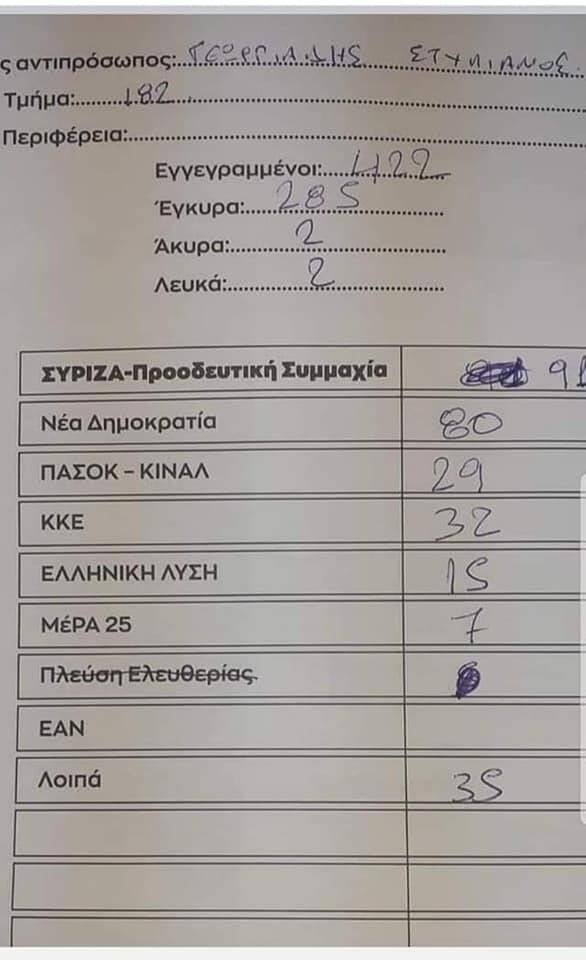 ς αντιπρόσωπος:....ΓΕΩΡΓΙΑΔΗΣ ΣΤΥΛΙΑΝΟΣ.
Τμήμα:....182....
Περιφέρεια:....
Εγγεγραμμένοι:....422....
Έγκυρα:....285....
Άκυρα:....2....
Λευκά:....2....
ΣΥΡΙΖΑ-Προοδευτική Συμμαχία 91
Νέα Δημοκρατία 80
ΠΑΣΟΚ – ΚΙΝΑΛ 29
ΚΚΕ 32
ΕΛΛΗΝΙΚΗ ΛΥΣΗ 15
ΜέΡΑ 25 7
Πλεύση Ελευθερίας.
ΕΑΝ
Λοιπά 35